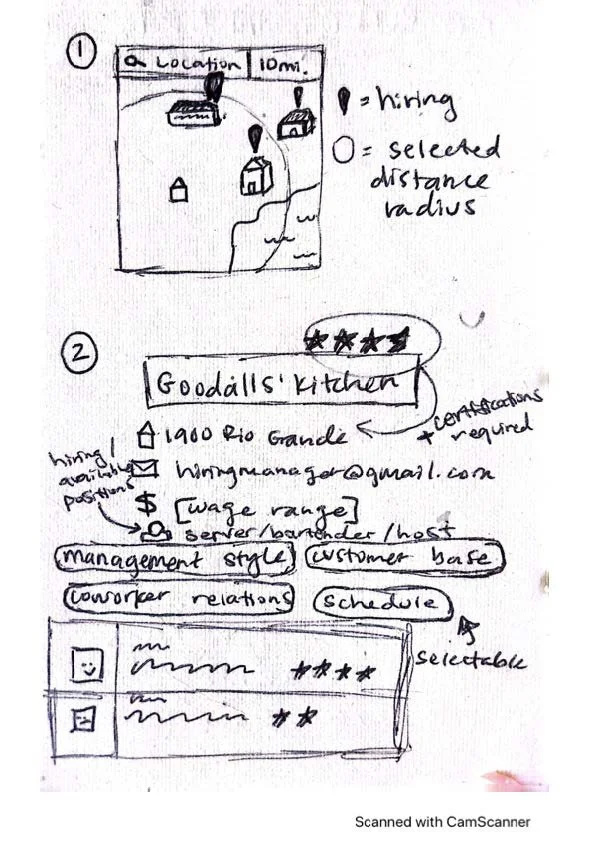 1
Location 10mi.
= hiring
= selected
distance
radius
2
Goodalls' Kitchen
1900 Rio Grande
+ certifications
required
hiring/
available
positions
hiringmanager@gmail.com
$ [wage range]
server/bartender/host
management style
customer base
coworker relations
schedule
selectable
Scanned with CamScanner